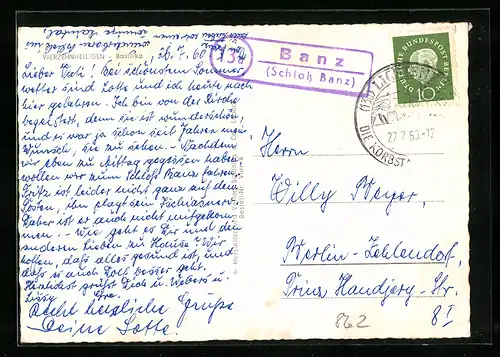 VIERZEHNHEILIGEN - Basilika
, 26.7.60
Lieber Vati! Bei schönstem Sommer-
wetter sind Lotte und ich heute nach
hier gefahren. Ich bin von der Kirche
begeistert, denn sie ist wunderschön,
und es war ja schon seit Jahren mein
Wunsch, sie zu sehen. - Nachdem
wir eben zu Mittag gegessen haben
wollen wir zum Schloß Banz fahren.
Fritz ist leider nicht ganz auf dem
Posten, ihn plagt sein
Daher ist er auch nicht mitgekom-
men. - Wie geht es Dir und den
anderen Lieben zu Hause? Wir
hoffen, daß alles gesund ist, und
daß es auch Rolf besser geht.
Herzlichst grüßt Dich u. Webers u.
Recht herzliche Grüße
Deine Lotte.
(13a)
Banz
(Schloß Banz)
DEUTSCHE BUNDESPOST BERLIN
10
27.7.60-12
DIE KORBST
Herrn
Willy Meyer,
Berlin-Zehlendorf,
Prinz Handjery-Str.
8I
862